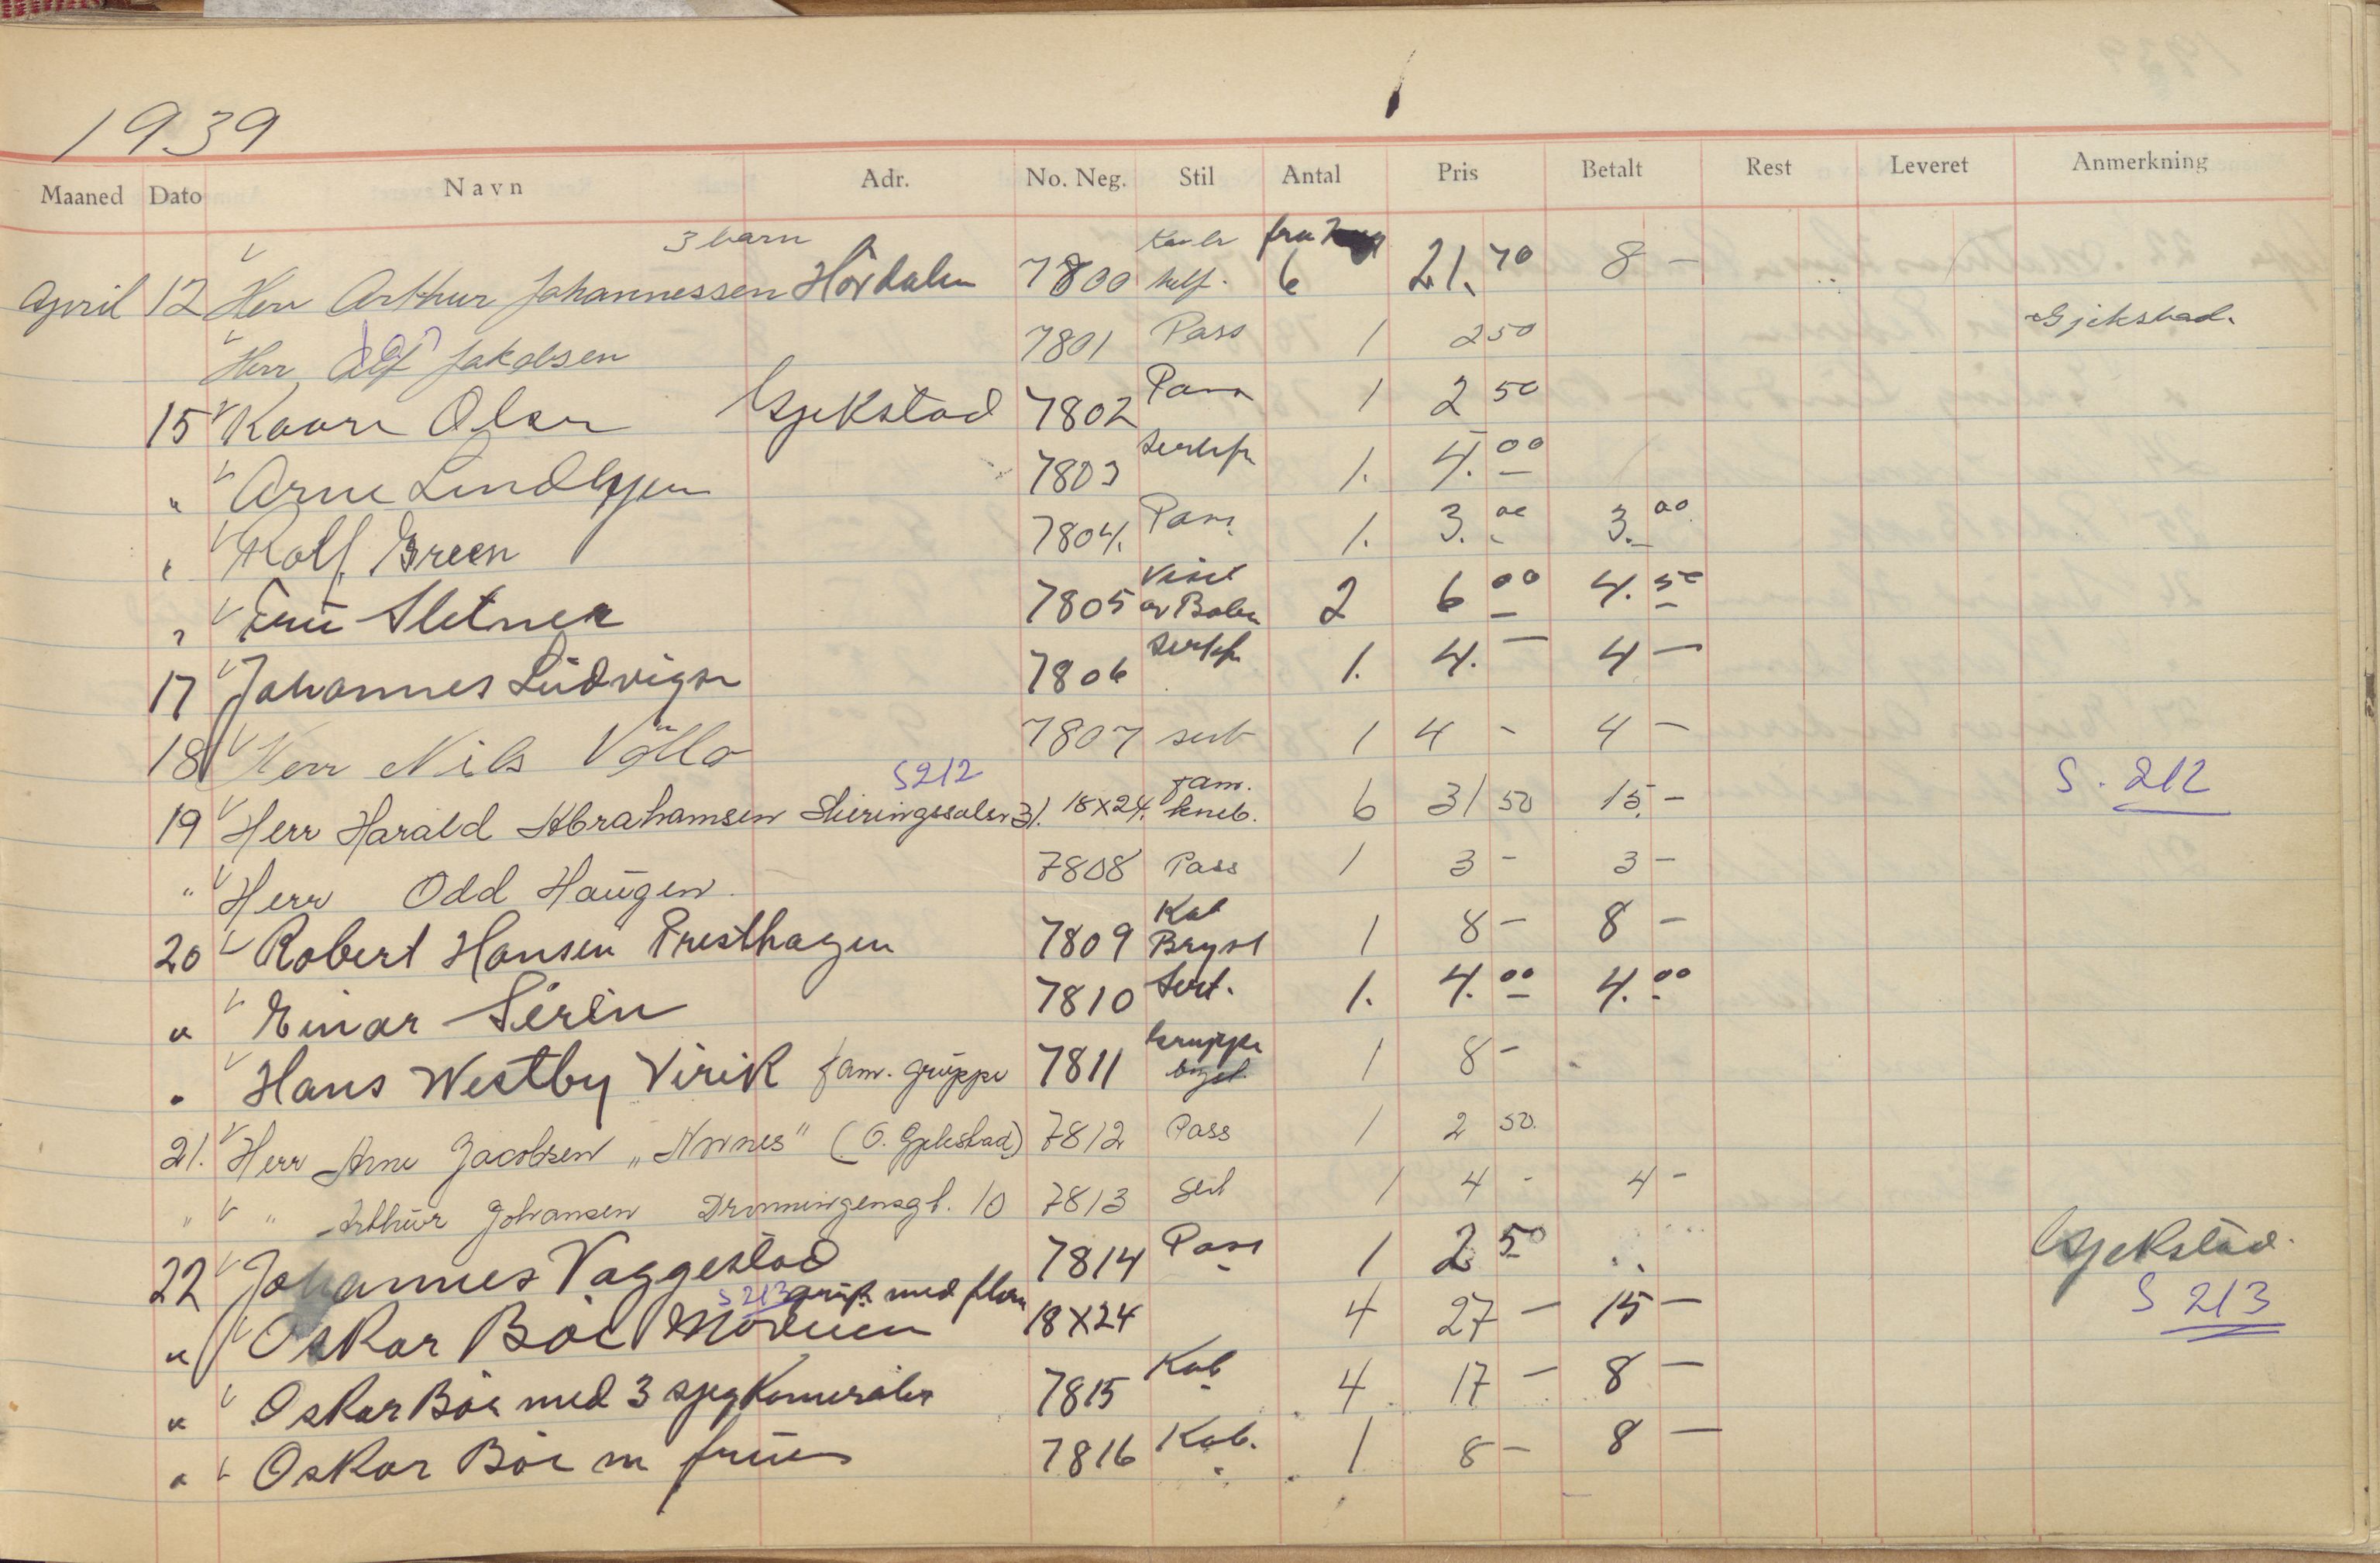 1939
Maaned Dato Navn Adr. No. Neg. Stil Antal Pris Betalt Rest Leveret Anmerkning
3 barn
April 12 Herr Arthur Johannessen Hördalen 7800 6 21.70 8 –
Herr Alf Jakobsen 7801 Pass 1 2 50 Gjekstad.
15 Kaare Olsen Gjekstad 7802 Pass 1 2 50
" Arne Lindhjem 7803 1. 4.00
" Rolf Green 7804. Pass 1. 3.00 3.00
" Frü Sletner 7805 Visit 2 6 00 4.50
17 Johannes Lüdvigsen 7806 1. 4. – 4 –
18 Herr Nils Völlo 7807 sert 1 4 – 4 –
S212
19 Herr Harald Abrahamsen 31. 18x24. fam. kneb. 6 31 50 15. – S. 212
" Herr Odd Haugen. 7808 Pass 1 3 – 3 –
20 Robert Hansen Presthagen 7809 Kab Bryst 1 8 – 8 –
" Einar Sirén 7810 Sert. 1. 4.00 4.00
" Hans Westby Virik fam. grüppe 7811 Gruppe 1 8 –
21. Herr Arne Jacobsen „Nornes" (O. Gjekstad) 7812 Pass 1 2 50.
" " Arthür Johansen Dronningensgt. 10 7813 Sert 1 4 – 4 –
22 Johannes Vaggestad 7814 Pass 1 2 50 Gjekstad.
S 213 grup. med flere
" Oskar Böe Moveien 18x24 4 27 – 15 – S 213
" Oskar Böe med 3 sjeg Kamerater 7815 Kab 4 17 – 8 –
" Oskar Böe m früe 7816 Kab. 1 8 – 8 –